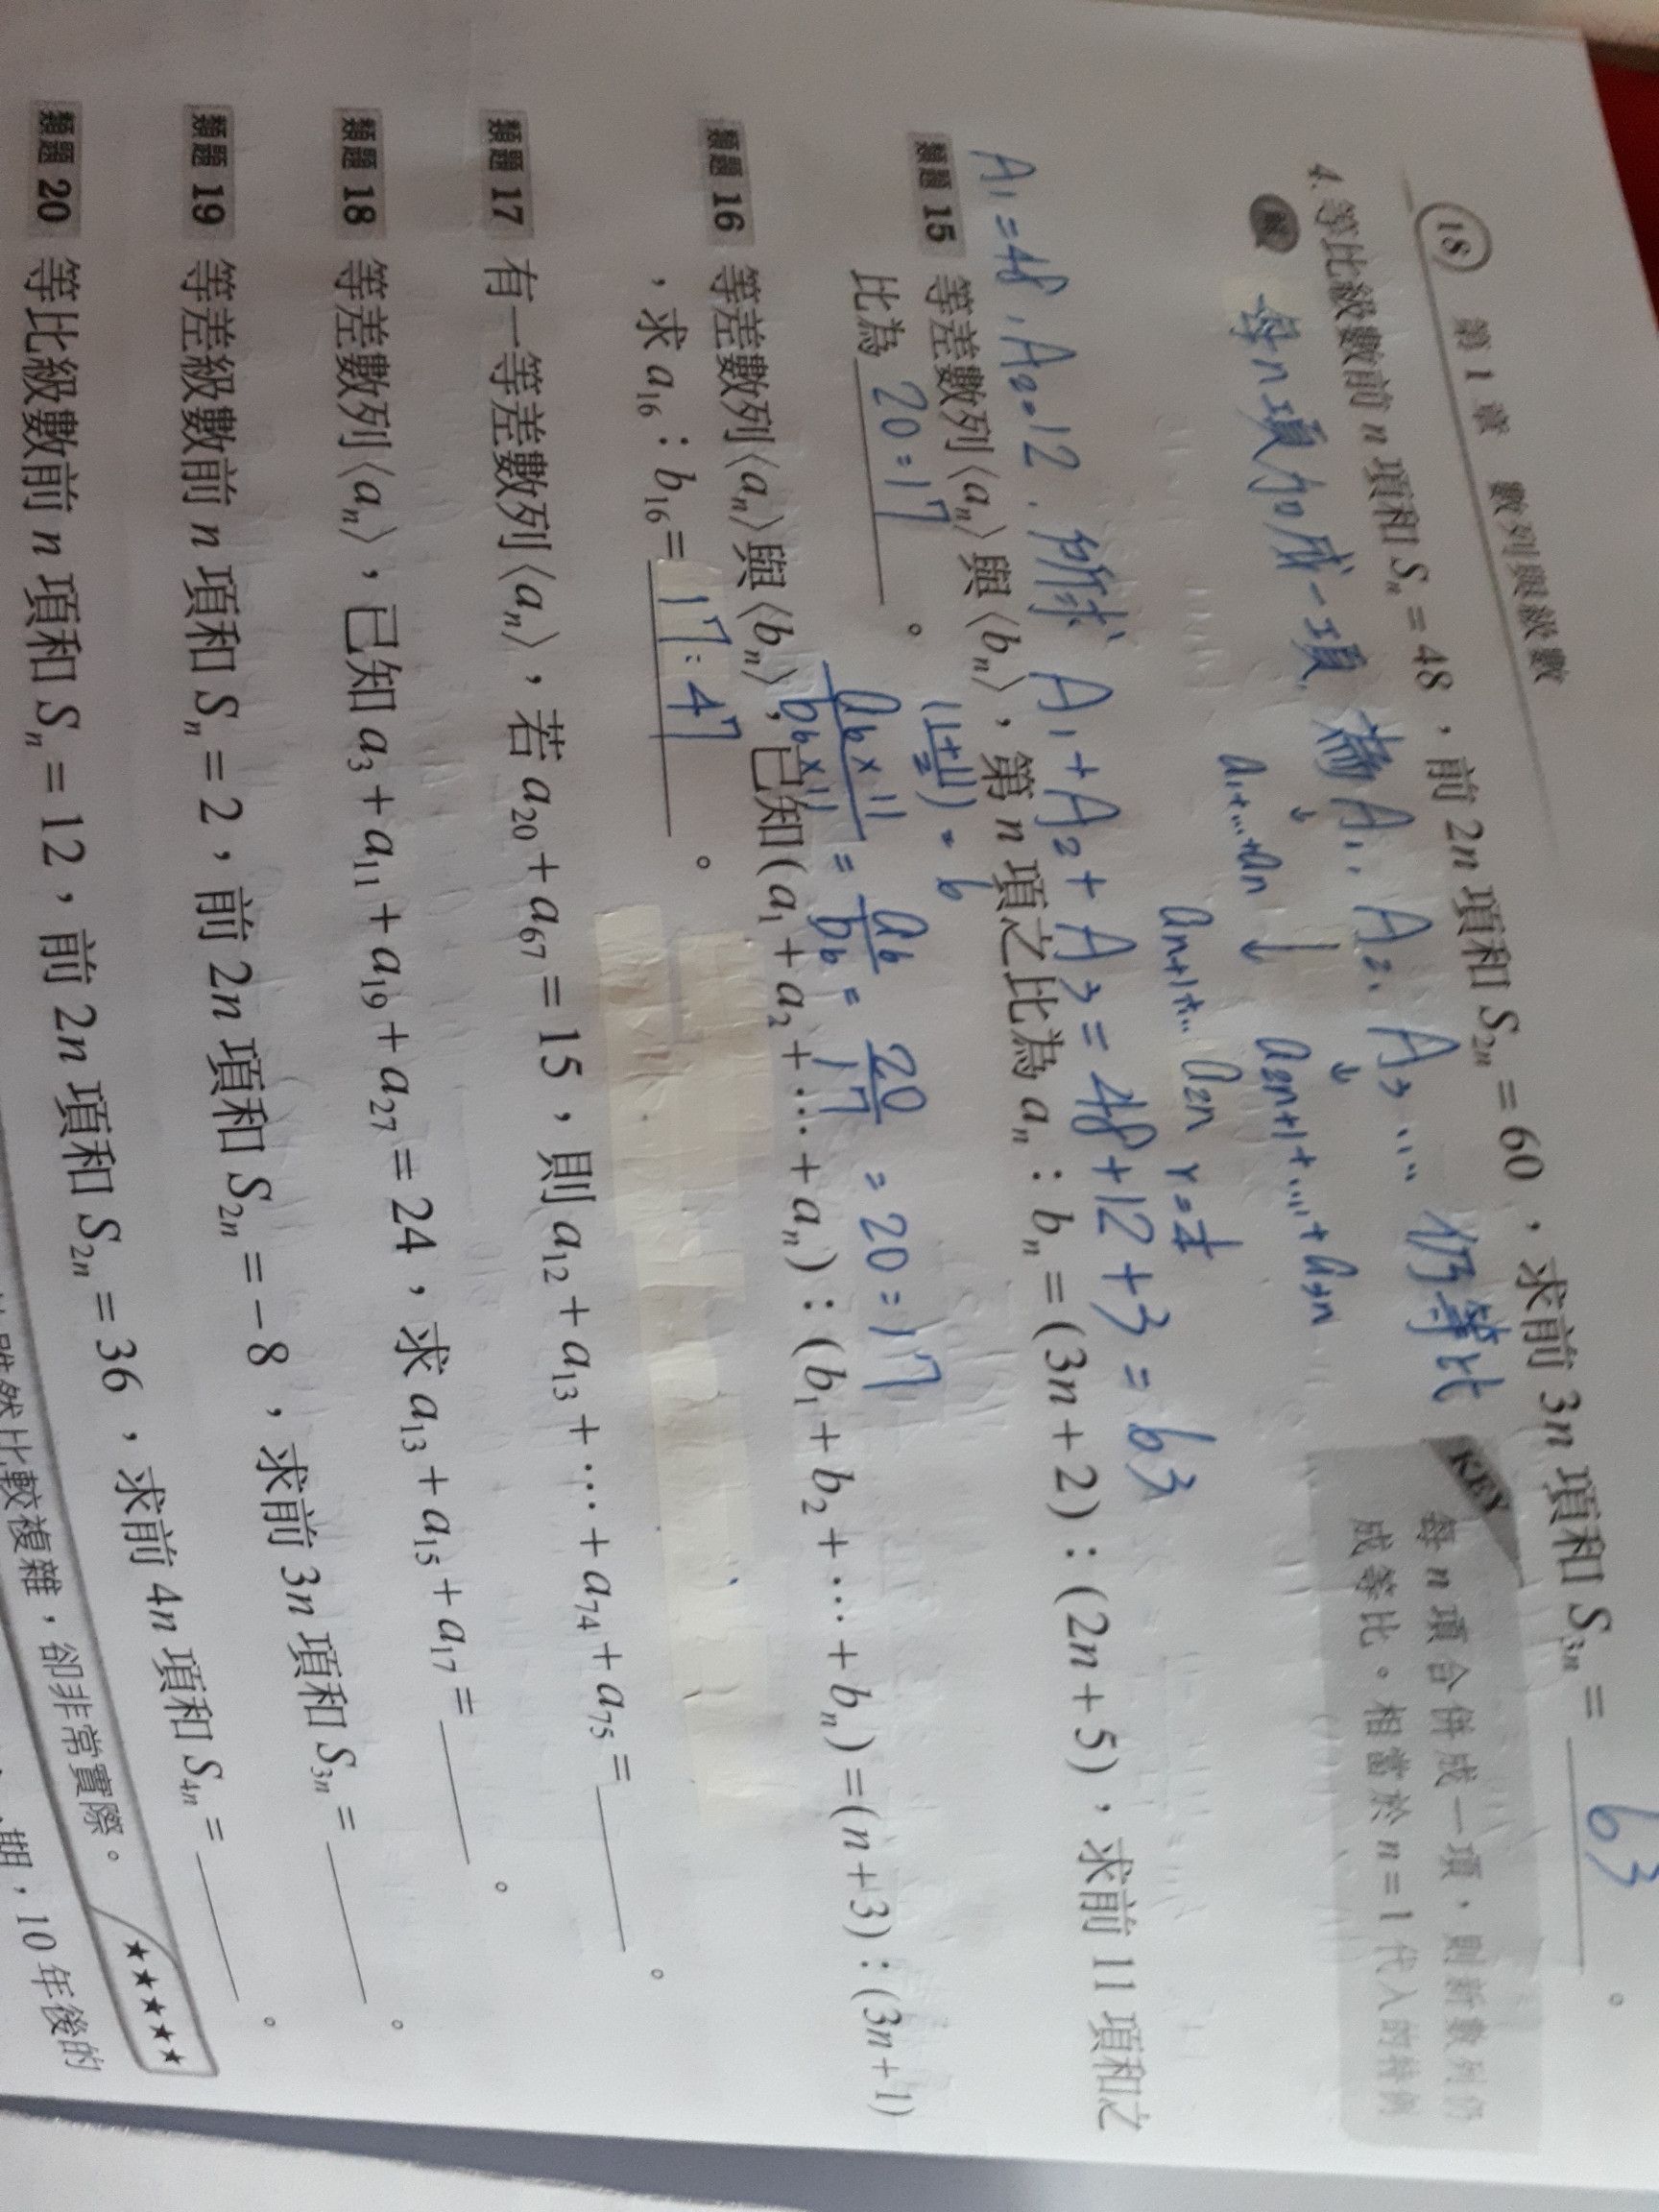 18 第 1 章 數列與級數
4. 等比級數前 n 項和 Sₙ = 48，前 2n 項和 S₂ₙ = 60，求前 3n 項和 S₃ₙ = 63 。
解 每n項加成一項, 為 A₁, A₂, A₃ ... 仍等比
a₁+...+aₙ a₂ₙ₊₁+...+a₃ₙ
aₙ₊₁+... a₂ₙ r=¼
KEY
每 n 項合併成一項，則新數列仍
成等比。相當於 n = 1 代入的特例
A₁=48, A₂=12, 所求 A₁+A₂+A₃=48+12+3=63
類題 15 等差數列⟨aₙ⟩與⟨bₙ⟩，第 n 項之比為 aₙ：bₙ = (3n + 2)：(2n + 5)，求前 11 項和之
比為 20:17 。
(1+11)/2 = 6
a₆×11/b₆×11 = a₆/b₆ = 20/17 = 20:17
類題 16 等差數列⟨aₙ⟩與⟨bₙ⟩，已知(a₁ + a₂ + … + aₙ)：(b₁ + b₂ + … + bₙ) = (n + 3)：(3n + 1)
，求 a₁₆：b₁₆ = 17:47 。
類題 17 有一等差數列⟨aₙ⟩，若 a₂₀ + a₆₇ = 15，則 a₁₂ + a₁₃ + … + a₇₄ + a₇₅ = 。
類題 18 等差數列⟨aₙ⟩，已知 a₃ + a₁₁ + a₁₉ + a₂₇ = 24，求 a₁₃ + a₁₅ + a₁₇ = 。
類題 19 等差級數前 n 項和 Sₙ = 2，前 2n 項和 S₂ₙ = −8，求前 3n 項和 S₃ₙ = 。
類題 20 等比級數前 n 項和 Sₙ = 12，前 2n 項和 S₂ₙ = 36，求前 4n 項和 S₄ₙ = 。
★★★★★
雖然比較複雜，卻非常實際。
期，10 年後的